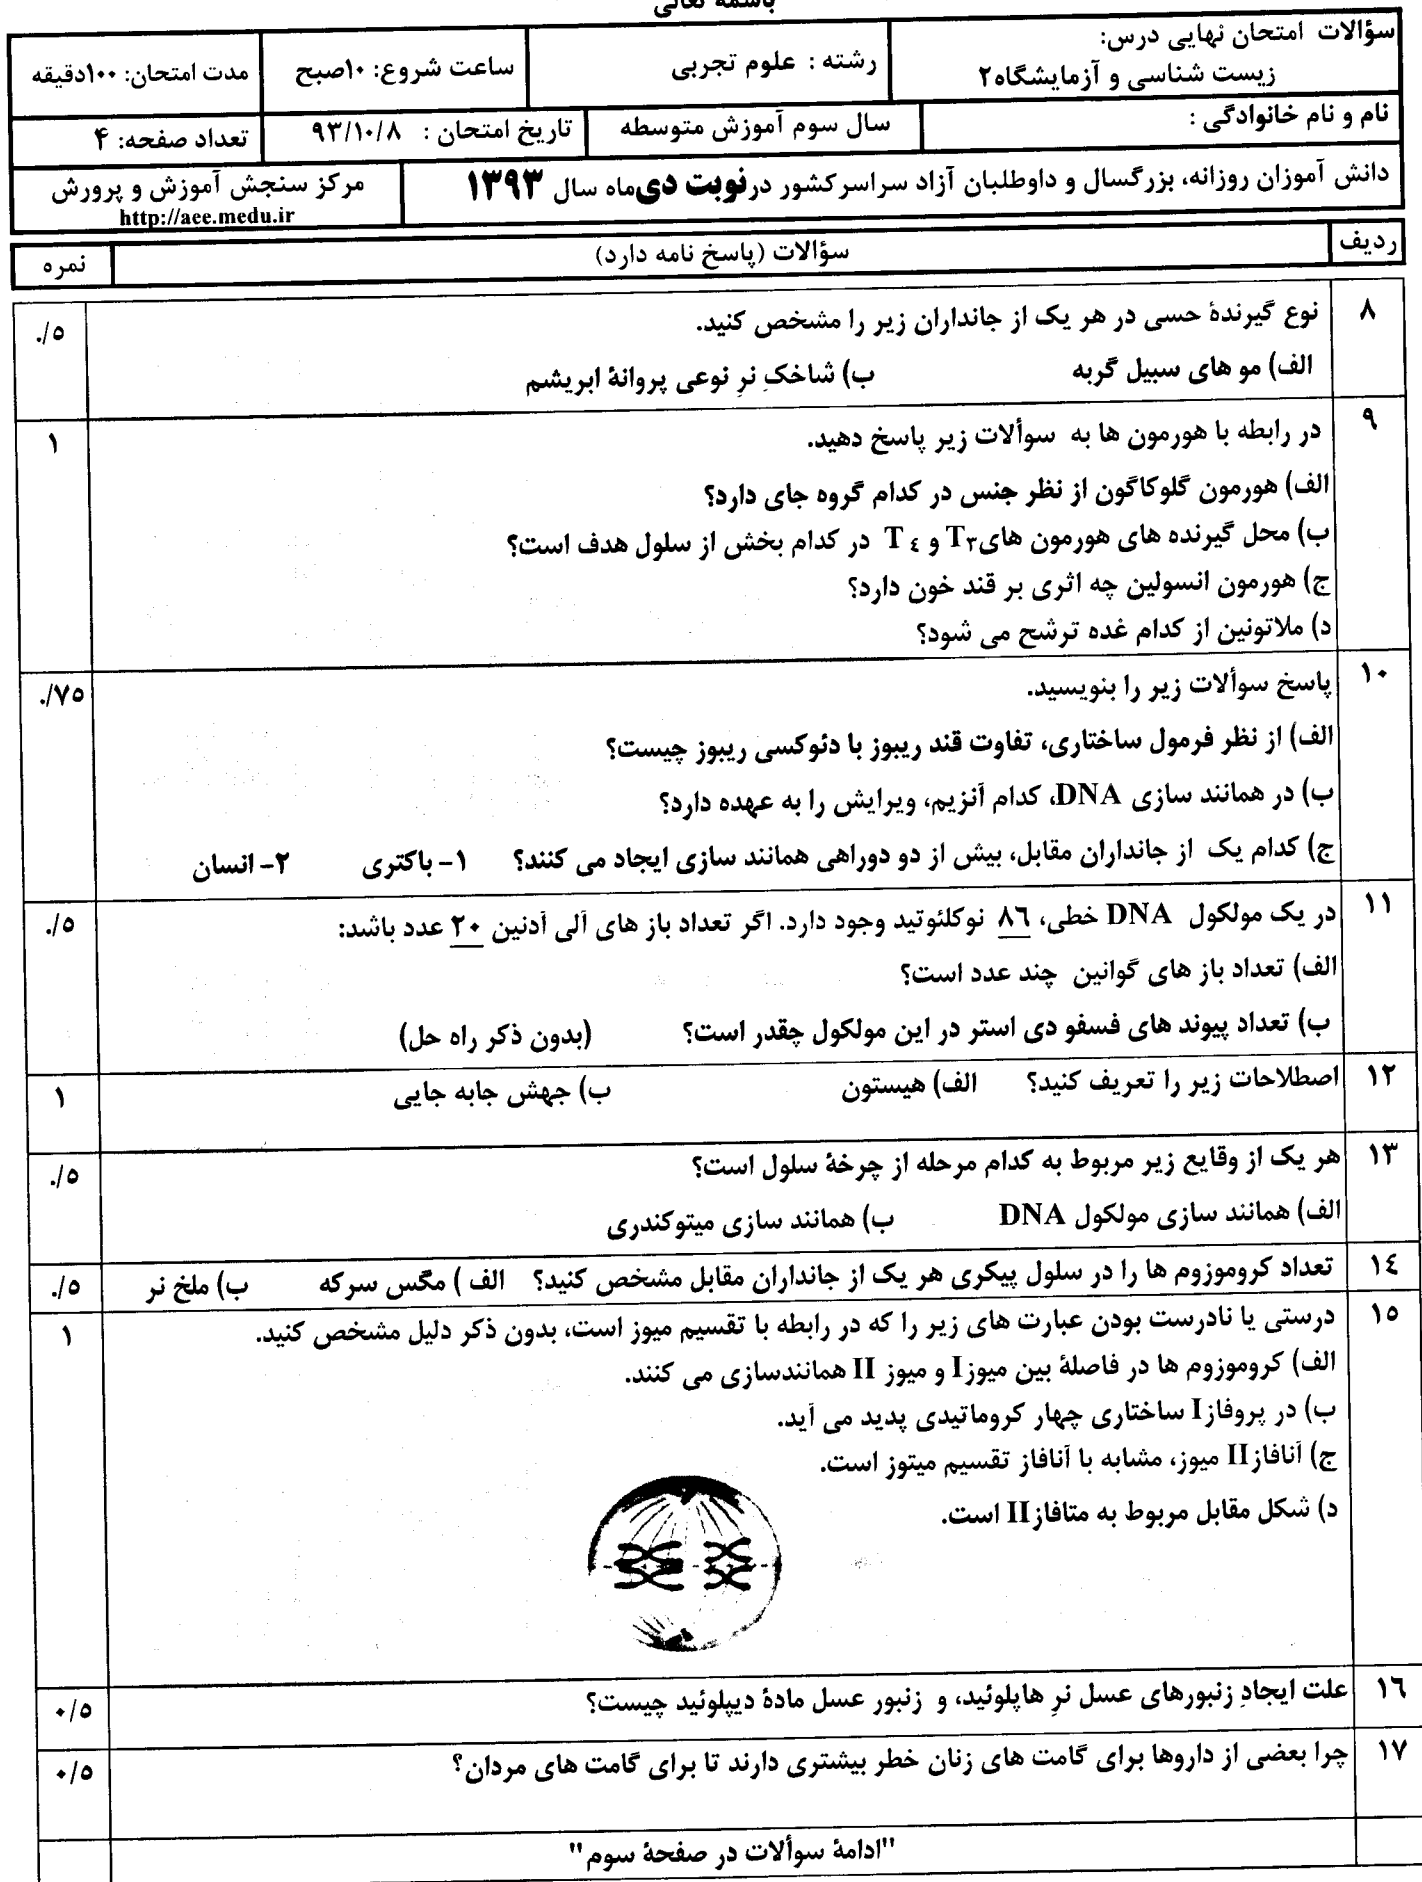 باسمه تعالی
سؤالات امتحان نهایی درس:
زیست شناسی و آزمایشگاه۲
رشته : علوم تجربی
ساعت شروع: ۱۰صبح
مدت امتحان: ۱۰۰دقیقه
نام و نام خانوادگی :
سال سوم آموزش متوسطه
تاریخ امتحان : ۹۳/۱۰/۸
تعداد صفحه: ۴
دانش آموزان روزانه، بزرگسال و داوطلبان آزاد سراسرکشور درنوبت دی‌ماه سال ۱۳۹۳
مرکز سنجش آموزش و پرورش
http://aee.medu.ir
ردیف
سؤالات (پاسخ نامه دارد)
نمره
۸ نوع گیرندهٔ حسی در هر یک از جانداران زیر را مشخص کنید. ۰/۵
الف) مو های سبیل گربه ب) شاخکِ نرِ نوعی پروانهٔ ابریشم
۹ در رابطه با هورمون ها به سوألات زیر پاسخ دهید. ۱
الف) هورمون گلوکاگون از نظر جنس در کدام گروه جای دارد؟
ب) محل گیرنده های هورمون هایT۳ و T٤ در کدام بخش از سلول هدف است؟
ج) هورمون انسولین چه اثری بر قند خون دارد؟
د) ملاتونین از کدام غده ترشح می شود؟
۱۰ پاسخ سوألات زیر را بنویسید. ۰/۷۵
الف) از نظر فرمول ساختاری، تفاوت قند ریبوز با دئوکسی ریبوز چیست؟
ب) در همانند سازی DNA، کدام آنزیم، ویرایش را به عهده دارد؟
ج) کدام یک از جانداران مقابل، بیش از دو دوراهی همانند سازی ایجاد می کنند؟ ۱- باکتری ۲- انسان
۱۱ در یک مولکول DNA خطی، ۸٦ نوکلئوتید وجود دارد. اگر تعداد باز های آلی آدنین ۲۰ عدد باشد: ۰/۵
الف) تعداد باز های گوانین چند عدد است؟
ب) تعداد پیوند های فسفو دی استر در این مولکول چقدر است؟ (بدون ذکر راه حل)
۱۲ اصطلاحات زیر را تعریف کنید؟ الف) هیستون ب) جهش جابه جایی ۱
۱۳ هر یک از وقایع زیر مربوط به کدام مرحله از چرخهٔ سلول است؟ ۰/۵
الف) همانند سازی مولکول DNA ب) همانند سازی میتوکندری
۱٤ تعداد کروموزوم ها را در سلول پیکری هر یک از جانداران مقابل مشخص کنید؟ الف ) مگس سرکه ب) ملخ نر ۰/۵
۱۵ درستی یا نادرست بودن عبارت های زیر را که در رابطه با تقسیم میوز است، بدون ذکر دلیل مشخص کنید. ۱
الف) کروموزوم ها در فاصلهٔ بین میوزI و میوز II همانندسازی می کنند.
ب) در پروفازI ساختاری چهار کروماتیدی پدید می آید.
ج) آنافازII میوز، مشابه با آنافاز تقسیم میتوز است.
د) شکل مقابل مربوط به متافازII است.
۱٦ علت ایجادِ زنبورهای عسل نرِ هاپلوئید، و زنبور عسل مادهٔ دیپلوئید چیست؟ ۰/۵
۱۷ چرا بعضی از داروها برای گامت های زنان خطر بیشتری دارند تا برای گامت های مردان؟ ۰/۵
"ادامهٔ سوألات در صفحهٔ سوم"